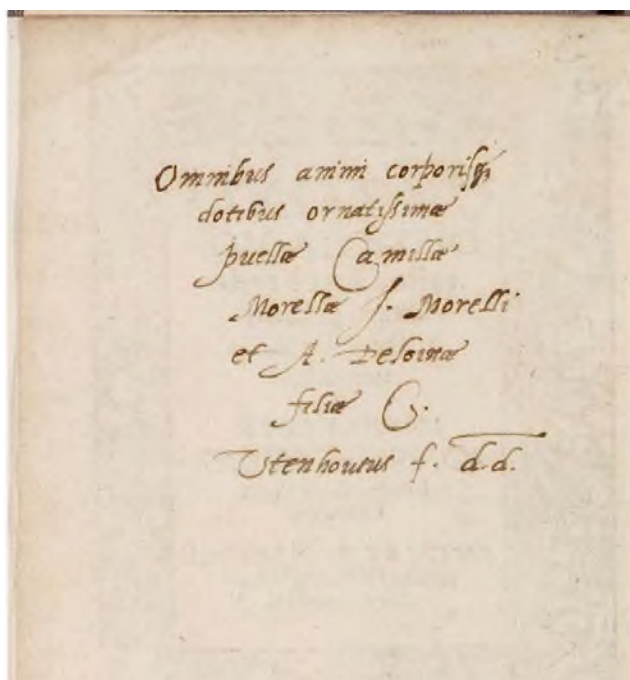 Omnibus animi corporisq;
dotibus ornatissimæ
puellæ Camillæ
Morellæ J. Morelli
et A. Deloinæ
filiæ C.
Utenhovius f. d.d.